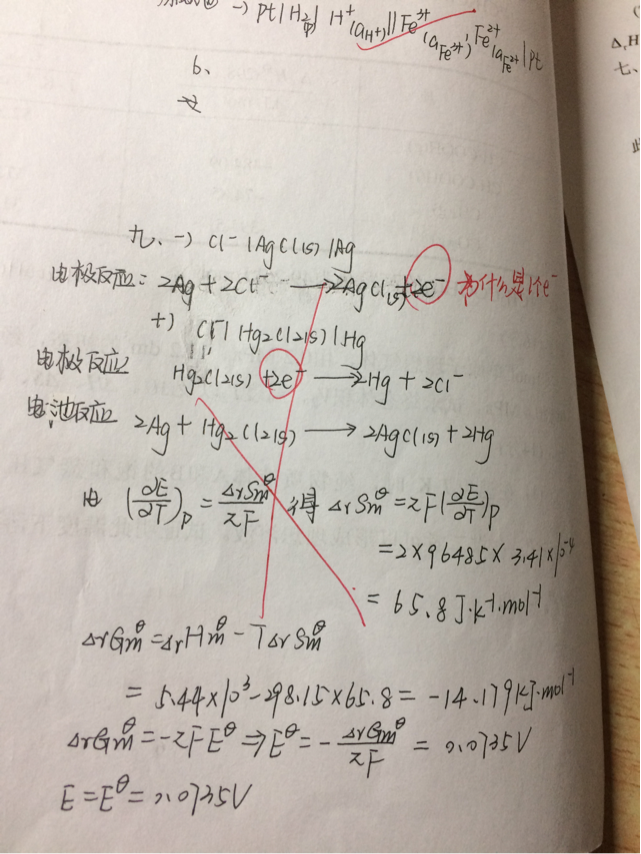 →) Pt | H₂(p) | H⁺(aH⁺) || Fe³⁺(aFe³⁺), Fe²⁺(aFe²⁺) | pt
6、
九、-) Cl⁻ | AgCl(s) | Ag
电极反应: 2Ag + 2Cl⁻ → 2AgCl(s) + 2e⁻ 为什么是1个e⁻
+) Cl⁻ | Hg₂Cl₂(s) | Hg
电极反应 Hg₂Cl₂(s) + 2e⁻ → 2Hg + 2Cl⁻
电池反应 2Ag + Hg₂Cl₂(s) → 2AgCl(s) + 2Hg
由 (∂E/∂T)p = ΔrSmθ/zF 得 ΔrSmθ = zF(∂E/∂T)p
= 2×96485×3.41×10⁻⁴
= 65.8 J·k⁻¹·mol⁻¹
ΔrGmθ = ΔrHmθ - TΔrSmθ
= 5.44×10³ - 298.15×65.8 = -14.179 kJ·mol⁻¹
ΔrGmθ = -zFEθ ⇒ Eθ = -ΔrGmθ/zF = 0.0735V
E = Eθ = 0.0735V
Δr H
七、